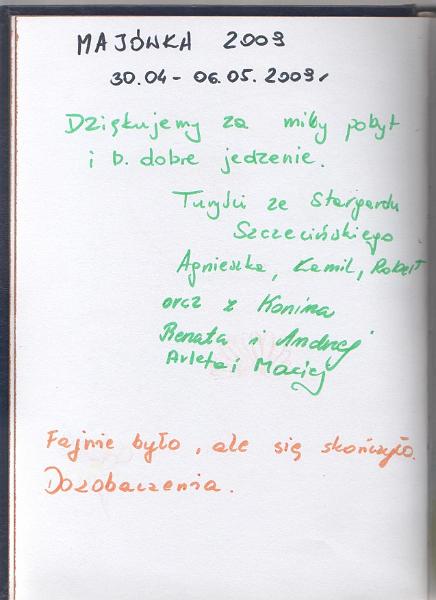 MAJÓWKA 2009
30.04 - 06.05.2009r
Dziękujemy za miły pobyt
i b. dobre jedzenie.
Turyści ze Stargardu
Szczecińskiego
Agnieszka, Kamil, Robert
oraz z Konina
Renata i Andrzej
Arleta i Maciej
Fajnie było, ale się skończyło.
Dozobaczenia.